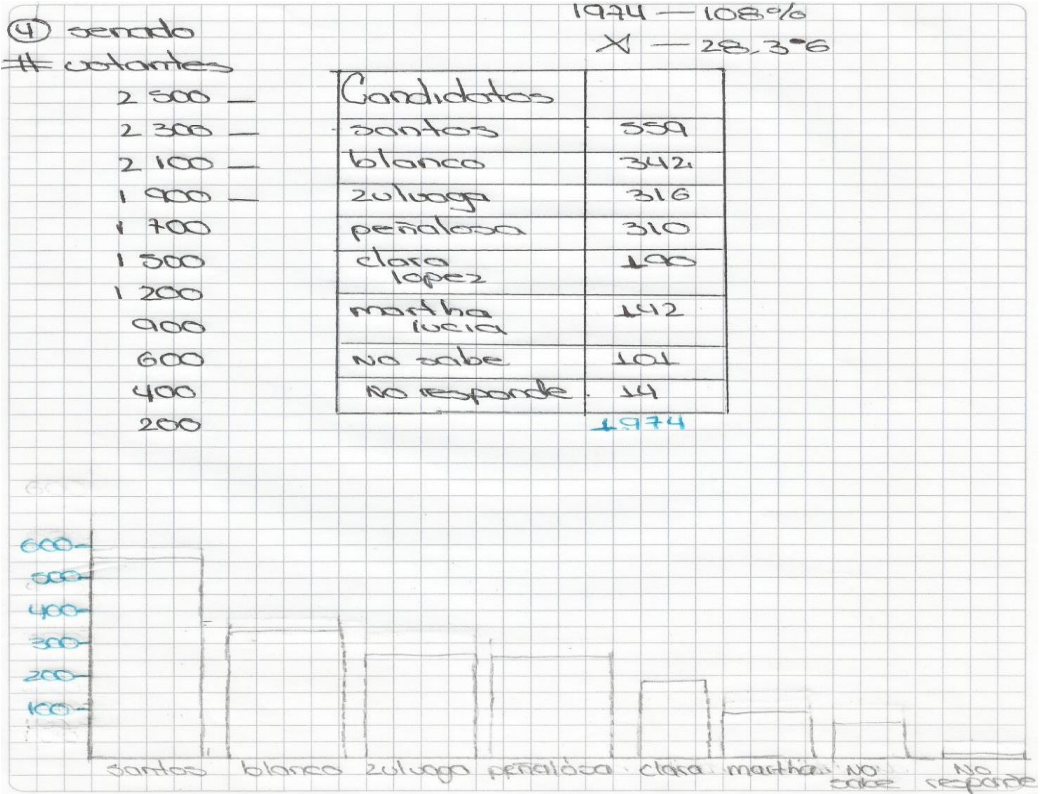 ④ senado
1974 — 108%
X — 28.3%
# votantes
2 500 —
2 300 —
2 100 —
1 900 —
1 700
1 500
1 200
900
600
400
200
Candidatos
santos 559
blanco 342
zuluaga 316
peñalosa 310
clara lopez 190
martha lucia 142
No sabe 101
No responde 14
1974
600-
500-
400-
300-
200-
100-
santos blanco zuluaga peñalósa clara martha No sabe No responde